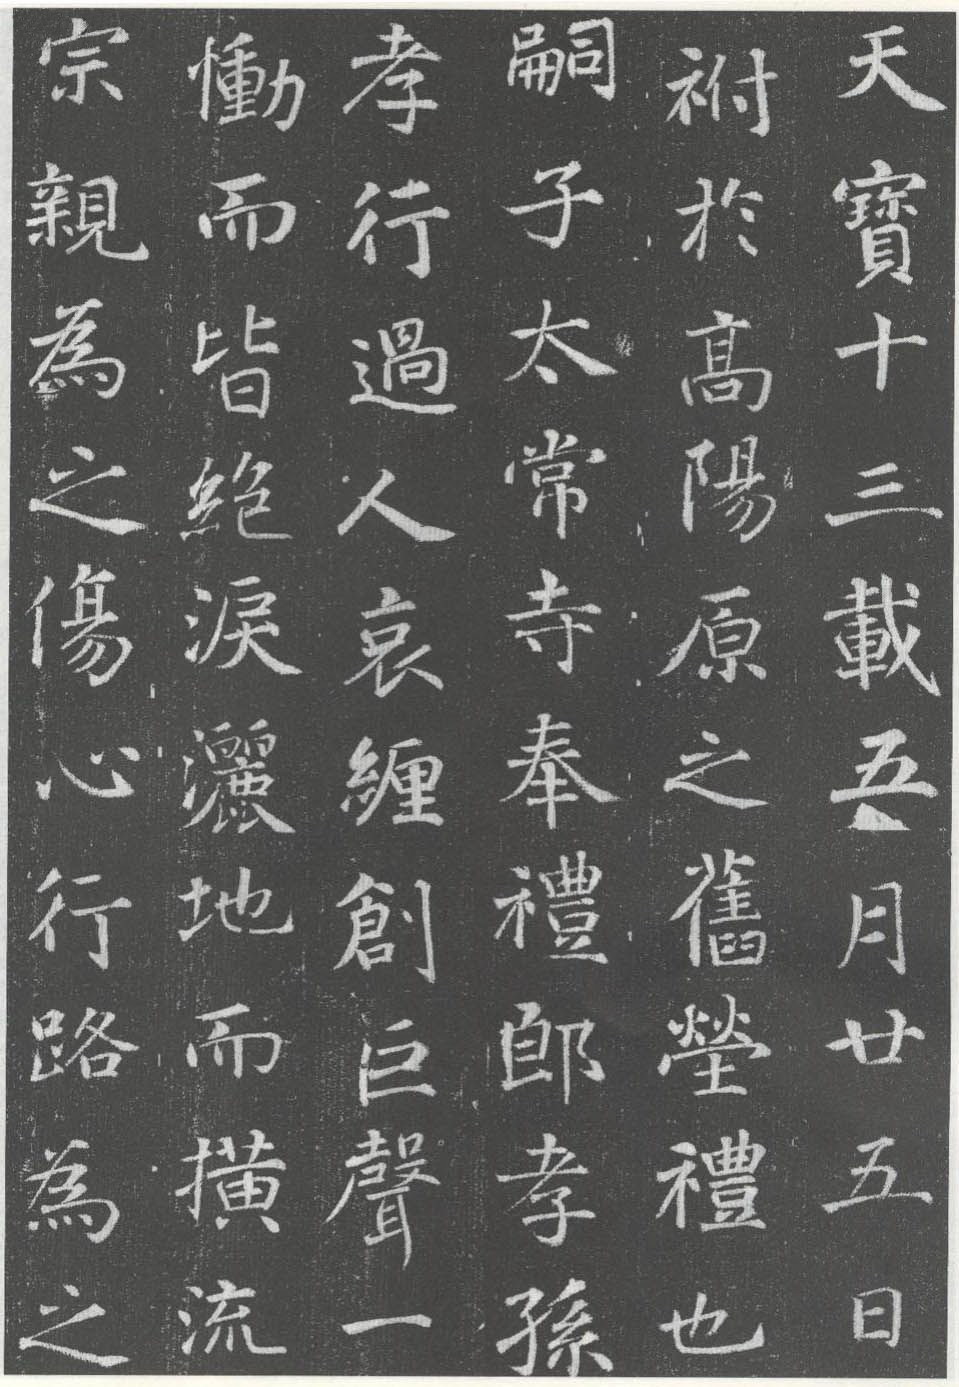 天寶十三載五月廿五日
祔於髙陽原之舊塋禮也
嗣子太常寺奉禮郎孝孫
孝行過人哀纏創巨聲一
慟而皆絶淚灑地而撗流
宗親為之傷心行路為之